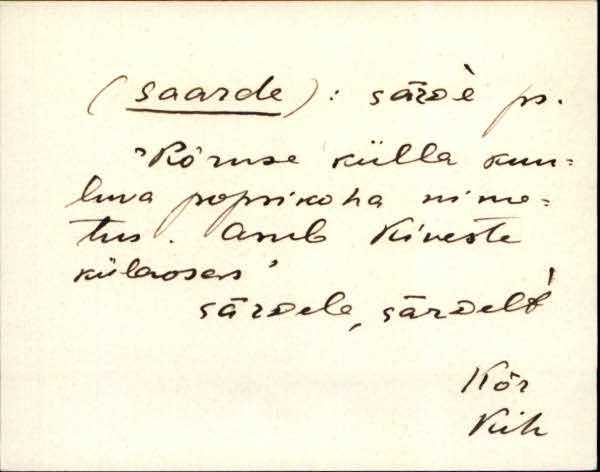 (saarde): sārdè ps.
"Kõruse külla kuu=
luva popsikoha nime=
tus. Asub Kiveste
külaosas'
sārdele, sārdelt
Kõr
Kih